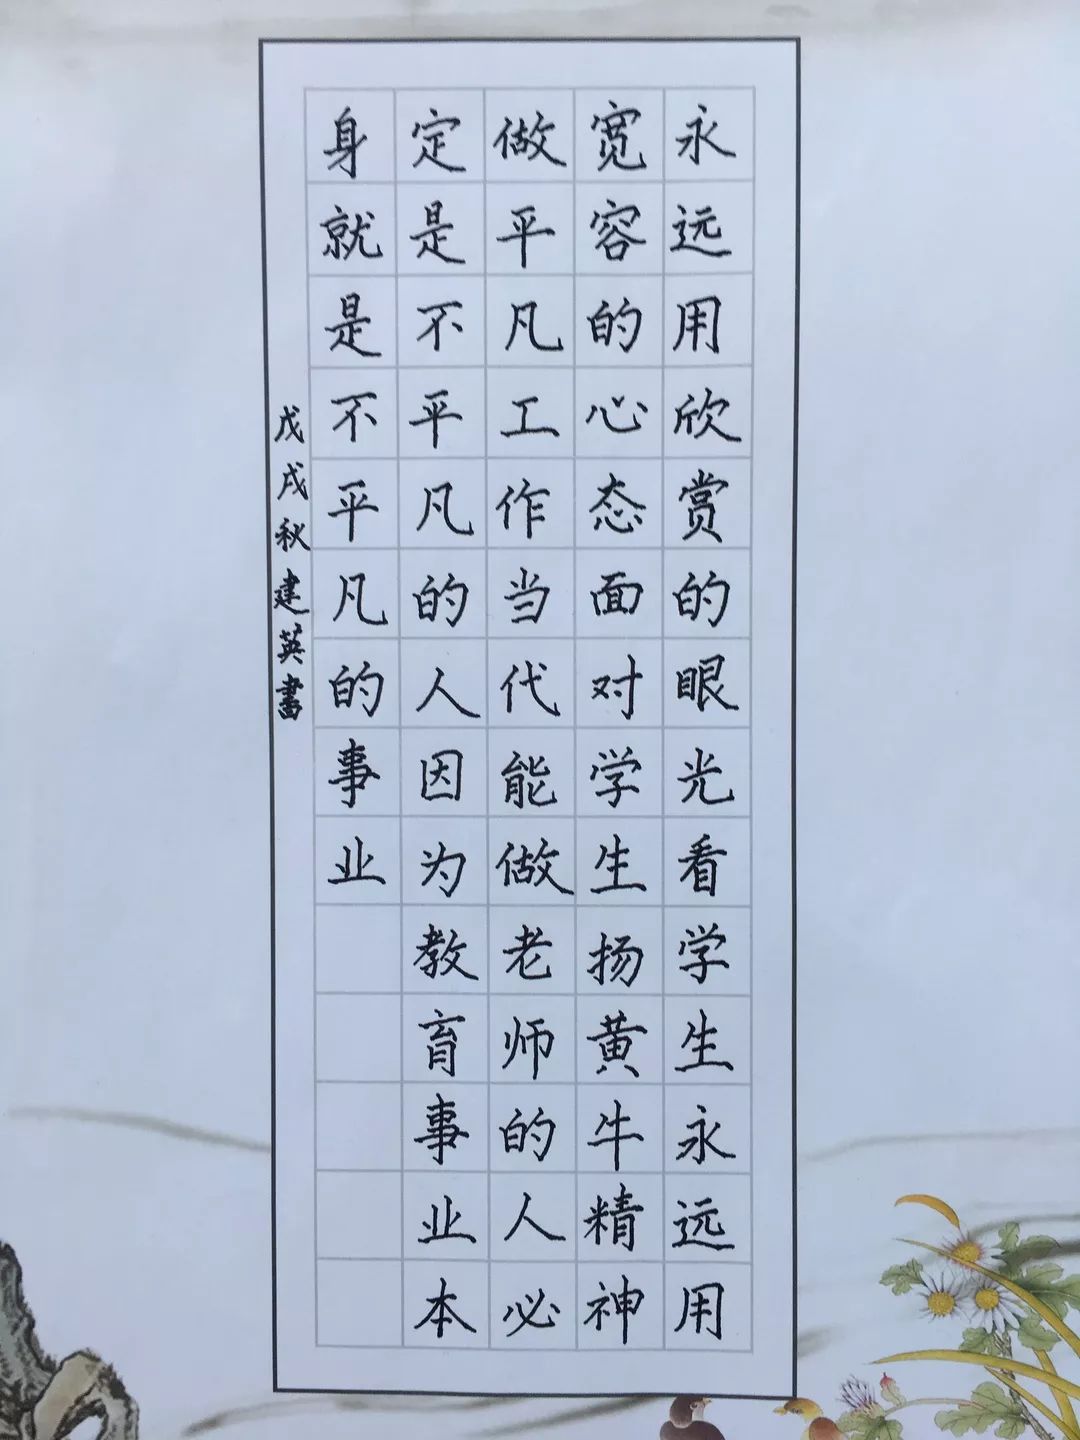 永远用欣赏的眼光看学生永远用
宽容的心态面对学生扬黄牛精神
做平凡工作当代能做老师的人必
定是不平凡的人因为教育事业本
身就是不平凡的事业
戊戌秋建英書